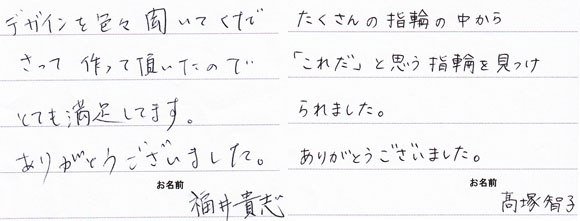 デザインを色々聞いてくだ
さって作って頂いたので
とても満足してます。
ありがとうございました。
お名前
福井貴志
たくさんの指輪の中から
「これだ」と思う指輪を見つけ
られました。
ありがとうございました。
お名前
高塚智子